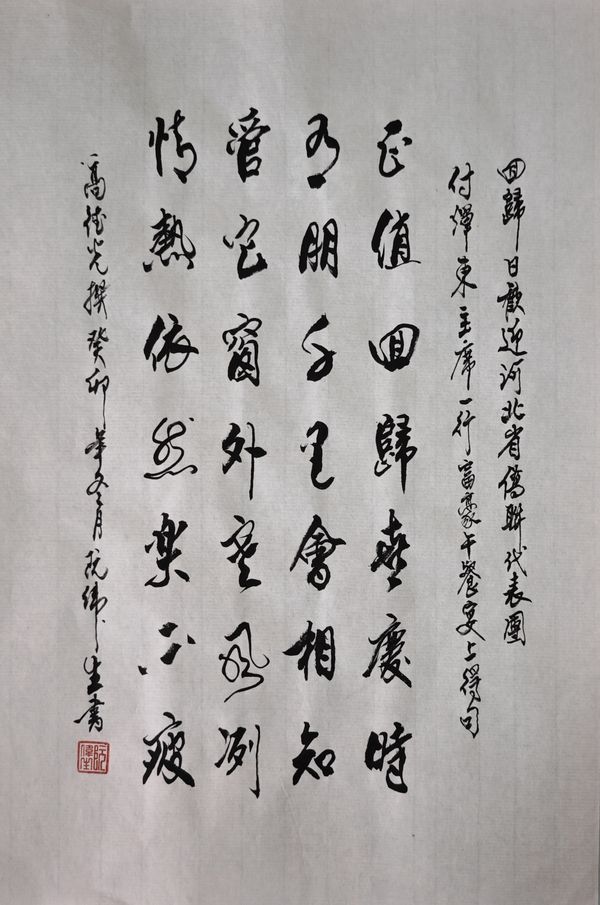 回歸日歡迎河北省僑聯代表團
付輝東主席一行富豪午餐宴上得句
正值回歸喜慶時
有朋千里會相知
管它窗外寒風冽
情熱依然樂不疲
高德光撰癸卯年冬月阮偉生書
阮偉生